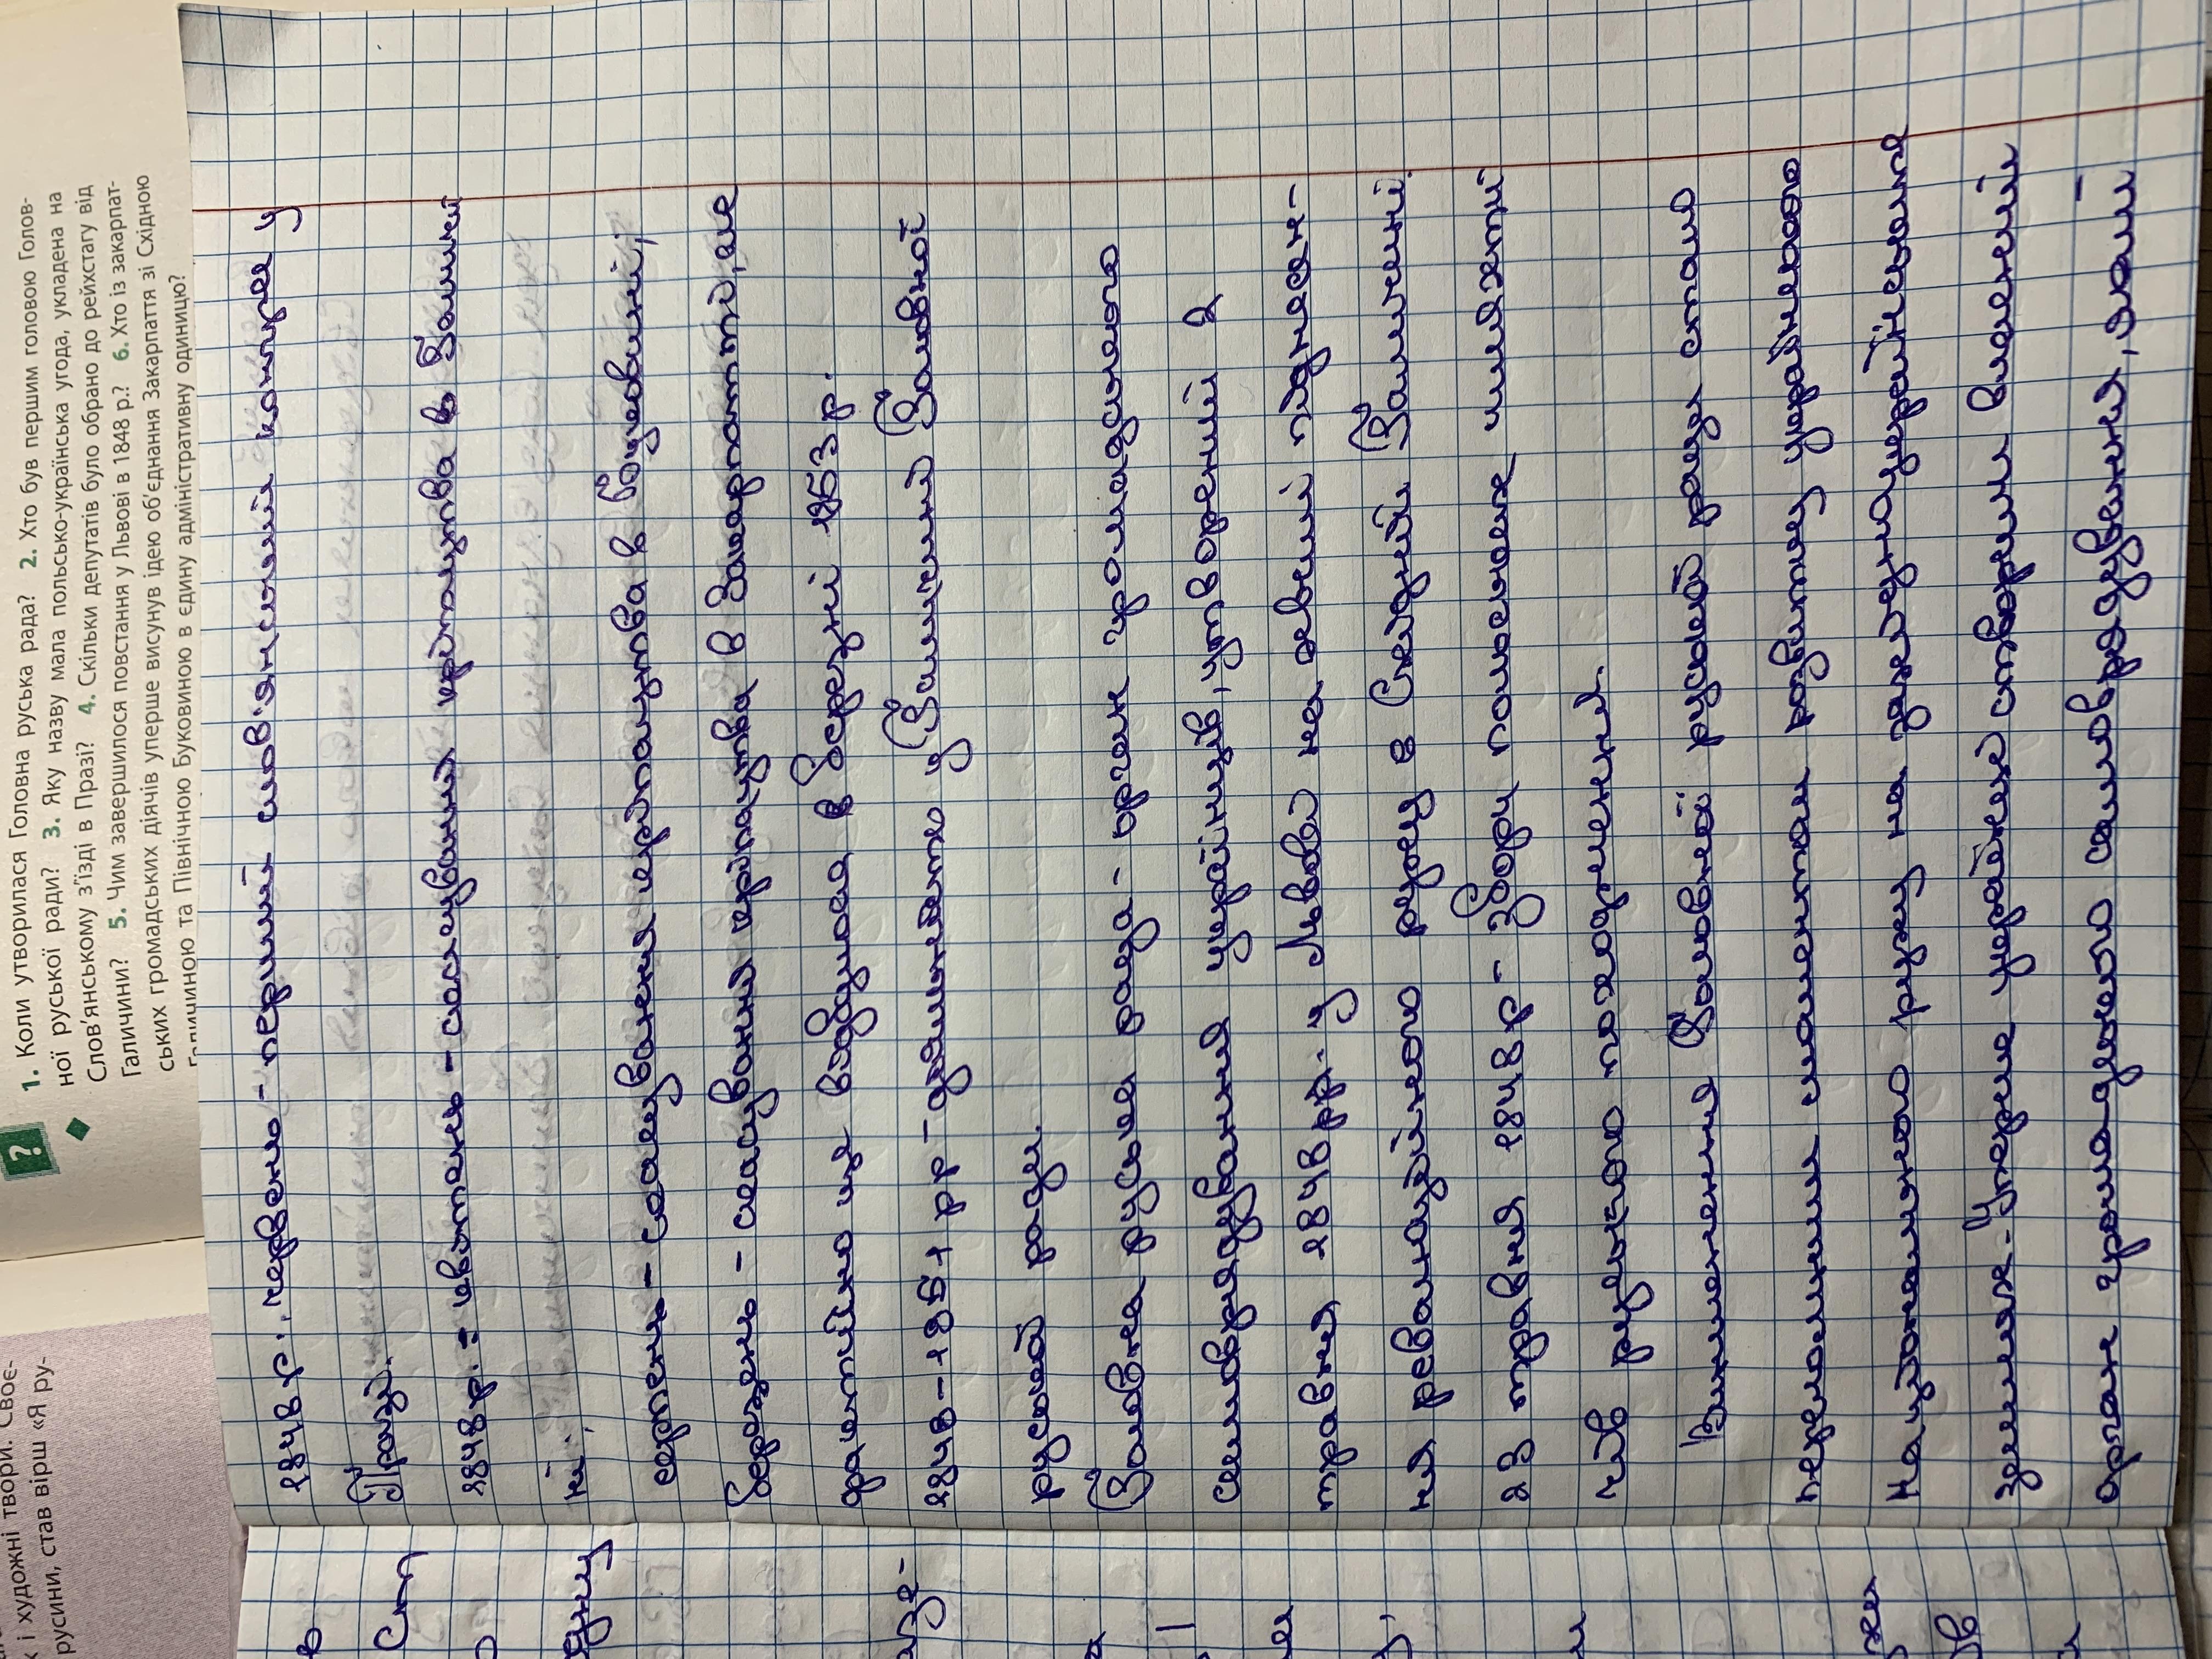 х і художні твори. Своє-
русини, став вірш «Я ру-
? 1. Коли утворилася Головна руська рада? 2. Хто був першим головою Голов-
ної руської ради? 3. Яку назву мала польсько-українська угода, укладена на
Слов'янському з'їзді в Празі? 4. Скільки депутатів було обрано до рейхстагу від
Галичини? 5. Чим завершилося повстання у Львові в 1848 р.? 6. Хто із закарпат-
ських громадських діячів уперше висунув ідею об'єднання Закарпаття зі Східною
Галичиною та Північною Буковиною в єдину адміністративну одиницю?
1848 р., червень - перший слов'янський конгрес у
Празі.
1848 р. - квітень - скасування кріпацтва в Галичи
ні;
серпень - скасування кріпацтва в Буковині;
березень - скасування кріпацтва в Закарпатті, але
фактично це відбулося в березні 1853 р.
1848-1851 рр - діяльність у Галичині Головної
руської ради.
Головна руська рада - орган громадського
самоврядування українців, утворений 2
травня 1848 рр. у Львові на хвилі піднесен-
ня революційного руху в Східній Галичині.
23 травня 1848 р - Збори галицької шляхти
руського походження.
Виникнення Головної руської ради стало
переломним моментом розвитку українського
національного руху на західноукраїнських
землях. Уперше українці створили власний
орган громадського самоврядування, який